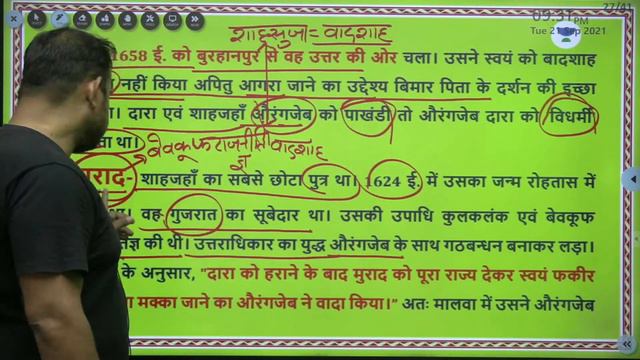 27/41
09:31 PM
Tue 21 Sep 2021
शाहसुजा = बादशाह
1658 ई. को बुरहानपुर से वह उत्तर की ओर चला। उसने स्वयं को बादशाह
नहीं किया अपितु आगरा जाने का उद्देश्य बिमार पिता के दर्शन की इच्छा
दारा एवं शाहजहाँ औरंगजेब को पाखंडी तो औरंगजेब दारा को विधर्मी
था।
बेवकूफ बादशाह
शाहजहाँ का सबसे छोटा पुत्र था। 1624 ई. में उसका जन्म रोहतास में
वह गुजरात का सूबेदार था। उसकी उपाधि कुलकलंक एवं बेवकूफ
की थी। उत्तराधिकार का युद्ध औरंगजेब के साथ गठबन्धन बनाकर लड़ा।
के अनुसार, "दारा को हराने के बाद मुराद को पूरा राज्य देकर स्वयं फकीर
मक्का जाने का औरंगजेब ने वादा किया।" अतः मालवा में उसने औरंगजेब